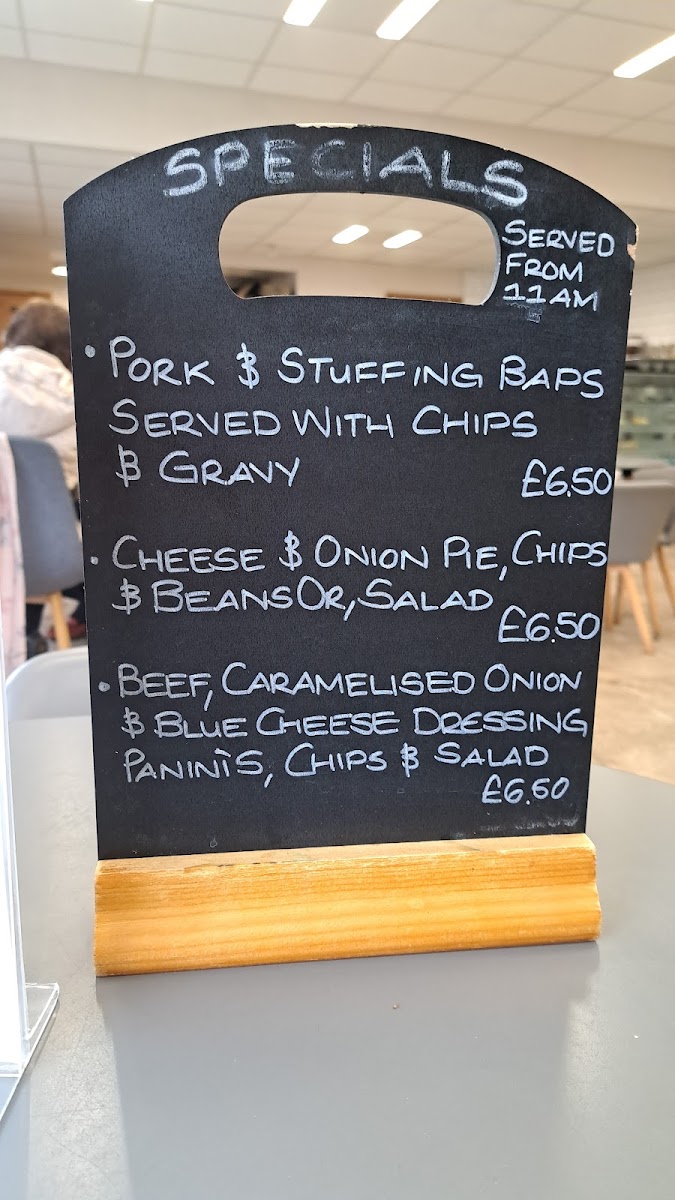 SPECIALS
SERVED
FROM
11AM
• PORK & STUFFING BAPS
SERVED WITH CHIPS
& GRAVY £6.50
• CHEESE & ONION PIE, CHIPS
& BEANS OR, SALAD
£6.50
• BEEF, CARAMELISED ONION
& BLUE CHEESE DRESSING
PANINI'S, CHIPS & SALAD
£6.60